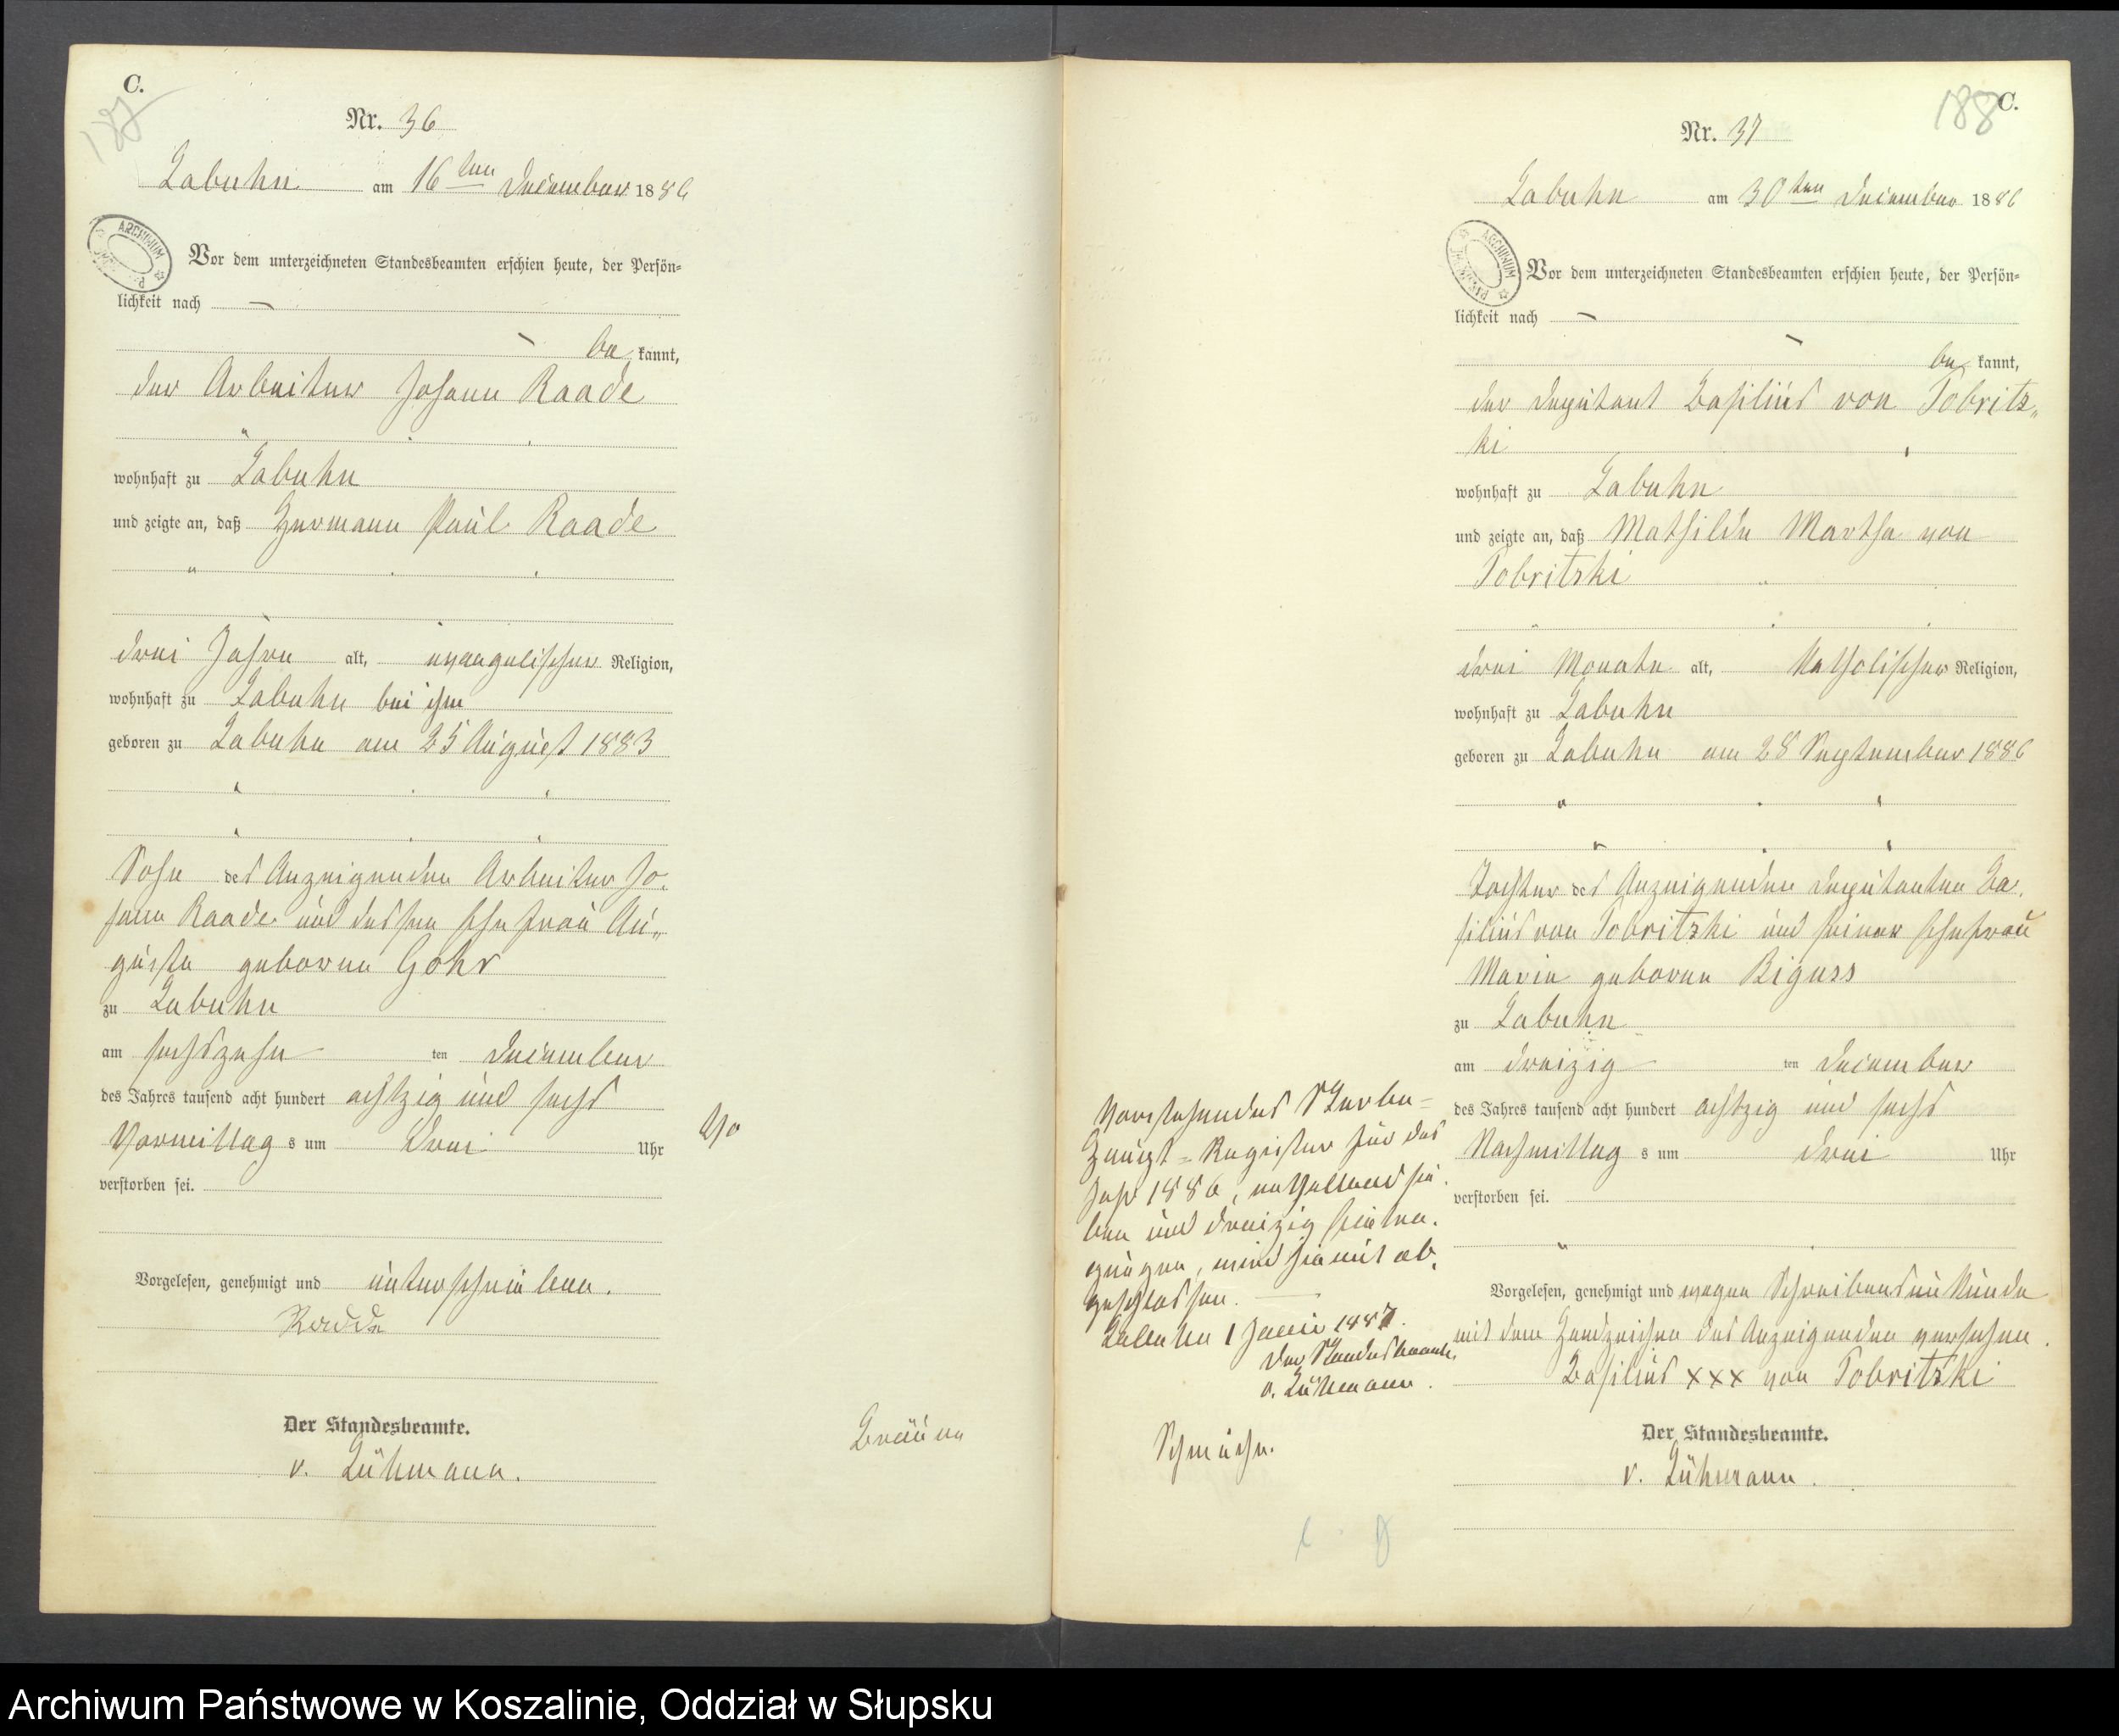 C.
187
Nr. 36
Labuhn am 16ten December 1886
ARCHIWUM
Vor dem unterzeichneten Standesbeamten erschien heute, der Persön=
lichkeit nach —
— be kannt,
der Arbeiter Johann Raade
wohnhaft zu Labuhn
und zeigte an, daß Hermann Paul Raade
drei Jahre alt, evangelischer Religion,
wohnhaft zu Labuhn bei ihm
geboren zu Labuhn am 25 August 1883
Sohn des Anzeigenden Arbeiter Jo-
hann Raade und dessen Ehefrau Au„
guste geborne Gohr
zu Labuhn
am sechszehn ten December
des Jahres tausend acht hundert achtzig und sechs
Vormittag s um drei Uhr
verstorben sei.
Vorgelesen, genehmigt und unterschrieben.
Der Standesbeamte.
v. Lühmann.
C.
188
Nr. 37
Labuhn am 30ten December 1886
ARCHIWUM
Vor dem unterzeichneten Standesbeamten erschien heute, der Persön=
lichkeit nach —
— be kannt,
der Deputant Basilius von Tobritz„
ki
wohnhaft zu Labuhn
und zeigte an, daß Mathilde Martha von
Tobritzki
drei Monate alt, Katholischer Religion,
wohnhaft zu Labuhn
geboren zu Labuhn am 28 September 1886
Tochter des Anzeigenden Deputanten Ba-
silius von Tobritzki und seiner Ehefrau
Marie geborne Biguss
zu Labuhn
am dreizig ten December
des Jahres tausend acht hundert achtzig und sechs
Nachmittag s um drei Uhr
verstorben sei.
Vorgelesen, genehmigt und wegen Schreibensunkunde
mit dem Handzeichen des Anzeigenden versehen.
Basilius xxx von Tobritzki
Der Standesbeamte.
v. Lühmann.
Vorstehendes Sterbe=
Haupt=Register für das
Jahr 1886, enthaltend sie-
ben und dreizig Eintra-
gungen, wird hiermit ab-
geschlossen.
Labuhn 1 Januar 1887.
Der Standesbeamte.
v. Lühmann.
Archiwum Państwowe w Koszalinie, Oddział w Słupsku